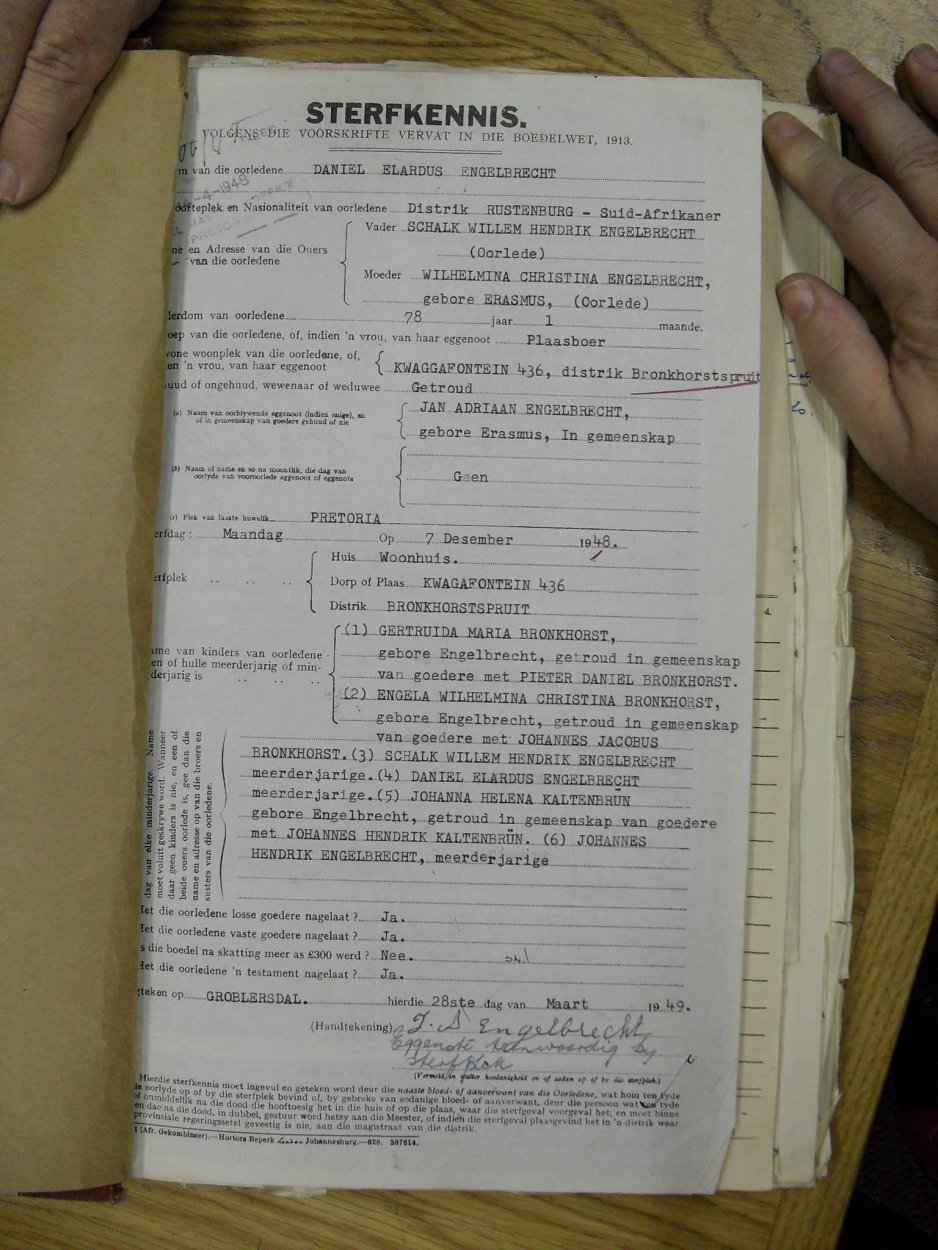 STERFKENNIS.
VOLGENS DIE VOORSKRIFTE VERVAT IN DIE BOEDELWET, 1913.
m van die oorledene DANIEL ELARDUS ENGELBRECHT
-4-1948
oorteplek en Nasionaliteit van oorledene Distrik RUSTENBURG - Suid-Afrikaner
ne en Adresse van die Ouers van die oorledene
Vader SCHALK WILLEM HENDRIK ENGELBRECHT
(Oorlede)
Moeder WILHELMINA CHRISTINA ENGELBRECHT,
gebore ERASMUS, (Oorlede)
derdom van oorledene 78 jaar 1 maande.
oep van die oorledene, of, indien 'n vrou, van haar eggenoot Plaasboer
wone woonplek van die oorledene, of,
en 'n vrou, van haar eggenoot KWAGGAFONTEIN 436, distrik Bronkhorstspruit
uud of ongehuud, wewenaar of weduwee Getroud
(a) Naam van oorblywende eggenoot (indien enige), en
of in gemeenskap van goedere gehuud of nie
JAN ADRIAAN ENGELBRECHT,
gebore Erasmus, In gemeenskap
(b) Naam of name en so na moontlik, die dag van
oorlyde van vooroorlede eggenoot of eggenote
Geen
(c) Plek van laaste huwelik PRETORIA
erfdag : Maandag Op 7 Desember 1948.
erfplek
Huis Woonhuis.
Dorp of Plaas KWAGAFONTEIN 436
Distrik BRONKHORSTSPRUIT
ame van kinders van oorledene
en of hulle meerderjarig of min-
derjarig is
(1) GERTRUIDA MARIA BRONKHORST,
gebore Engelbrecht, getroud in gemeenskap
van goedere met PIETER DANIEL BRONKHORST.
(2) ENGELA WILHELMINA CHRISTINA BRONKHORST,
gebore Engelbrecht, getroud in gemeenskap
van goedere met JOHANNES JACOBUS
dag van elke minderjarige. Name
moet voluit geskrywe word. Wanneer
daar geen kinders is nie, en een of
beide ouers oorlede is, gee dan die
name en adresse op van die broers en
susters van die oorledene.
BRONKHORST.(3) SCHALK WILLEM HENDRIK ENGELBRECHT
meerderjarige.(4) DANIEL ELARDUS ENGELBRECHT
meerderjarige.(5) JOHANNA HELENA KALTENBRÜN
gebore Engelbrecht, getroud in gemeenskap van goedere
met JOHANNES HENDRIK KALTENBRÜN. (6) JOHANNES
HENDRIK ENGELBRECHT, meerderjarige
Het die oorledene losse goedere nagelaat ? Ja.
Het die oorledene vaste goedere nagelaat ? Ja.
s die boedel na skatting meer as £300 werd ? Nee.
Het die oorledene 'n testament nagelaat ? Ja.
teken op GROBLERSDAL. hierdie 28ste dag van Maart 1949.
(Handtekening) J. A Engelbrecht
Eggenote teenwoordig by
sterfplek
(Vermeld in watter hoedanigheid en of aldan op of by die sterfplek.)
Hierdie sterfkennis moet ingevul en geteken word deur die naaste bloed- of aanverwant van die Oorledene, wat hom ten tyde
ie oorlyde op of by die sterfplek bevind of, by gebreke van sodanige bloed- of aanverwant, deur die persoon wat ten tyde
of onmiddellik na die dood die hooftoesig het in die huis of op die plaas, waar die sterfgeval voorgeval het, en moet binne
en dae na die dood, in dubbel, gestuur word hetsy aan die Meester, of indien die sterfgeval plaasgevind het in 'n distrik waar
provinsiale regeringssetel gevestig is nie, aan die magistraat van die distrik.
1 (Afr. Gekombineer).—Hortors Beperk Johannesburg.—628. 387614.